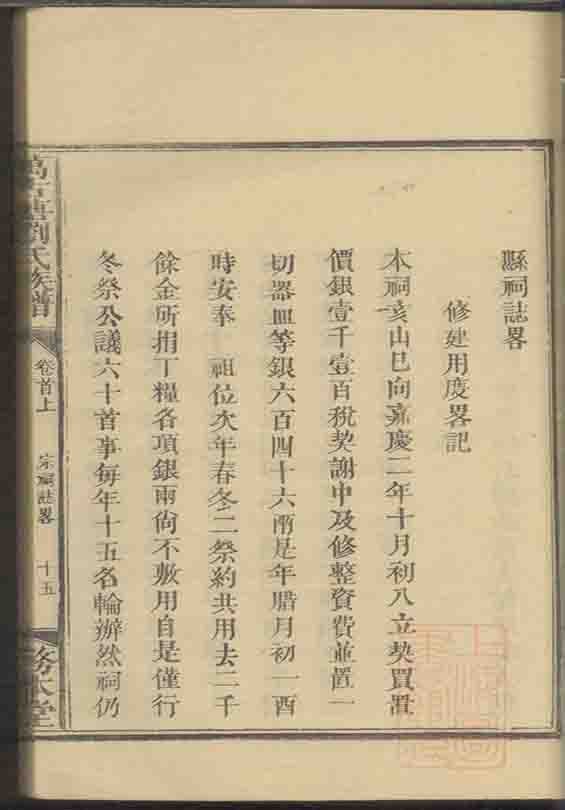 縣祠誌畧
修建用度畧記
本祠亥山巳向嘉慶二年十月初八立契買置
價銀壹千壹百稅契謝中及修整資費並置一
切器皿等銀六百四十六兩是年腊月初一酉
時安奉 祖位次年春冬二祭約共用去二千
餘金所捐丁糧各項銀兩尙不敷用自是僅行
冬祭公議六十首事每年十五名輪辦然祠仍
劉氏族譜
卷首上
宗祠誌畧
十五
務本堂